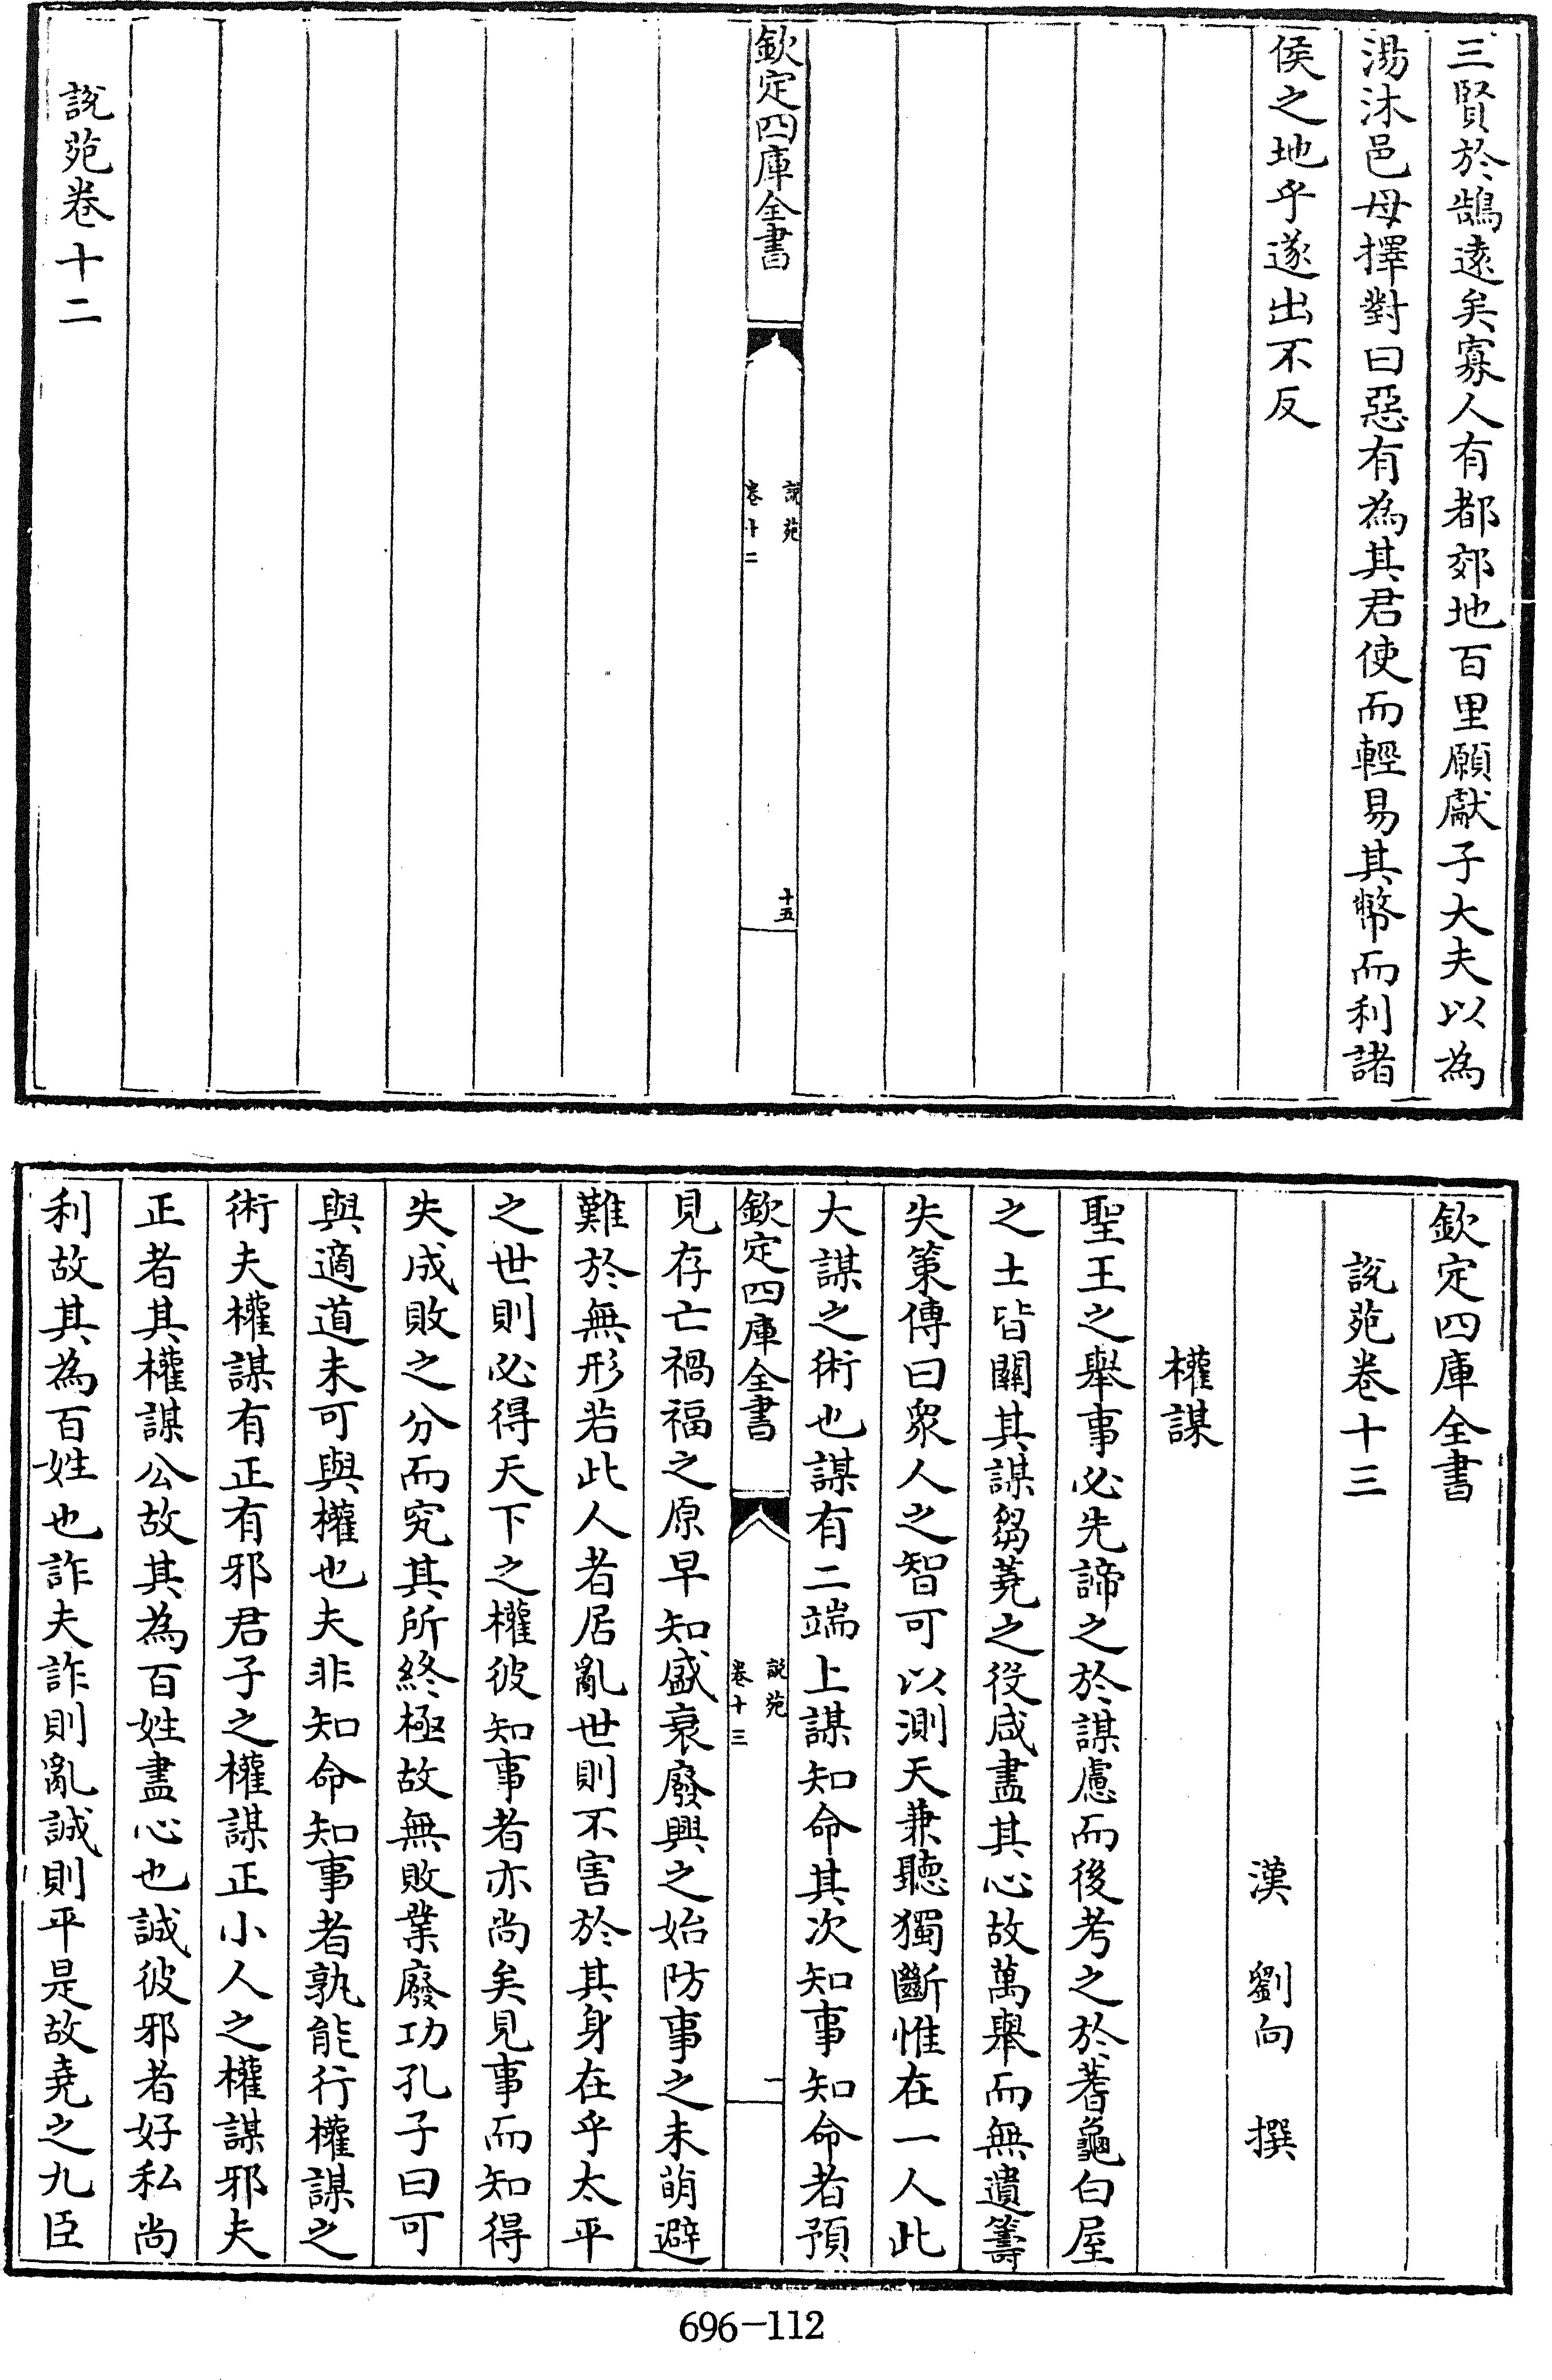 三賢於鵠遠矣寡人有都郊地百里願獻子大夫以為
湯沐邑母擇對曰惡有為其君使而輕易其幣而利諸
侯之地乎遂出不反
欽定四庫全書
說苑
卷十二
十五
說苑卷十二
欽定四庫全書
說苑卷十三
漢 劉向 撰
權謀
聖王之舉事必先諦之於謀慮而後考之於蓍龜白屋
之士皆關其謀芻蕘之役咸盡其心故萬舉而無遺籌
失策傳曰衆人之智可以測天兼聽獨斷惟在一人此
大謀之術也謀有二端上謀知命其次知事知命者預
欽定四庫全書
說苑
卷十三
一
見存亡禍福之原早知盛衰廢興之始防事之未萌避
難於無形若此人者居亂世則不害於其身在乎太平
之世則必得天下之權彼知事者亦尚矣見事而知得
失成敗之分而究其所終極故無敗業廢功孔子曰可
與適道未可與權也夫非知命知事者孰能行權謀之
術夫權謀有正有邪君子之權謀正小人之權謀邪夫
正者其權謀公故其為百姓盡心也誠彼邪者好私尚
利故其為百姓也詐夫詐則亂誠則平是故堯之九臣
696-112